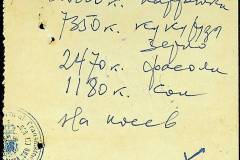 к. картошки
7350 к. кукуруза
зерно
2470 к. фасоли
1180 к. сои
на посев